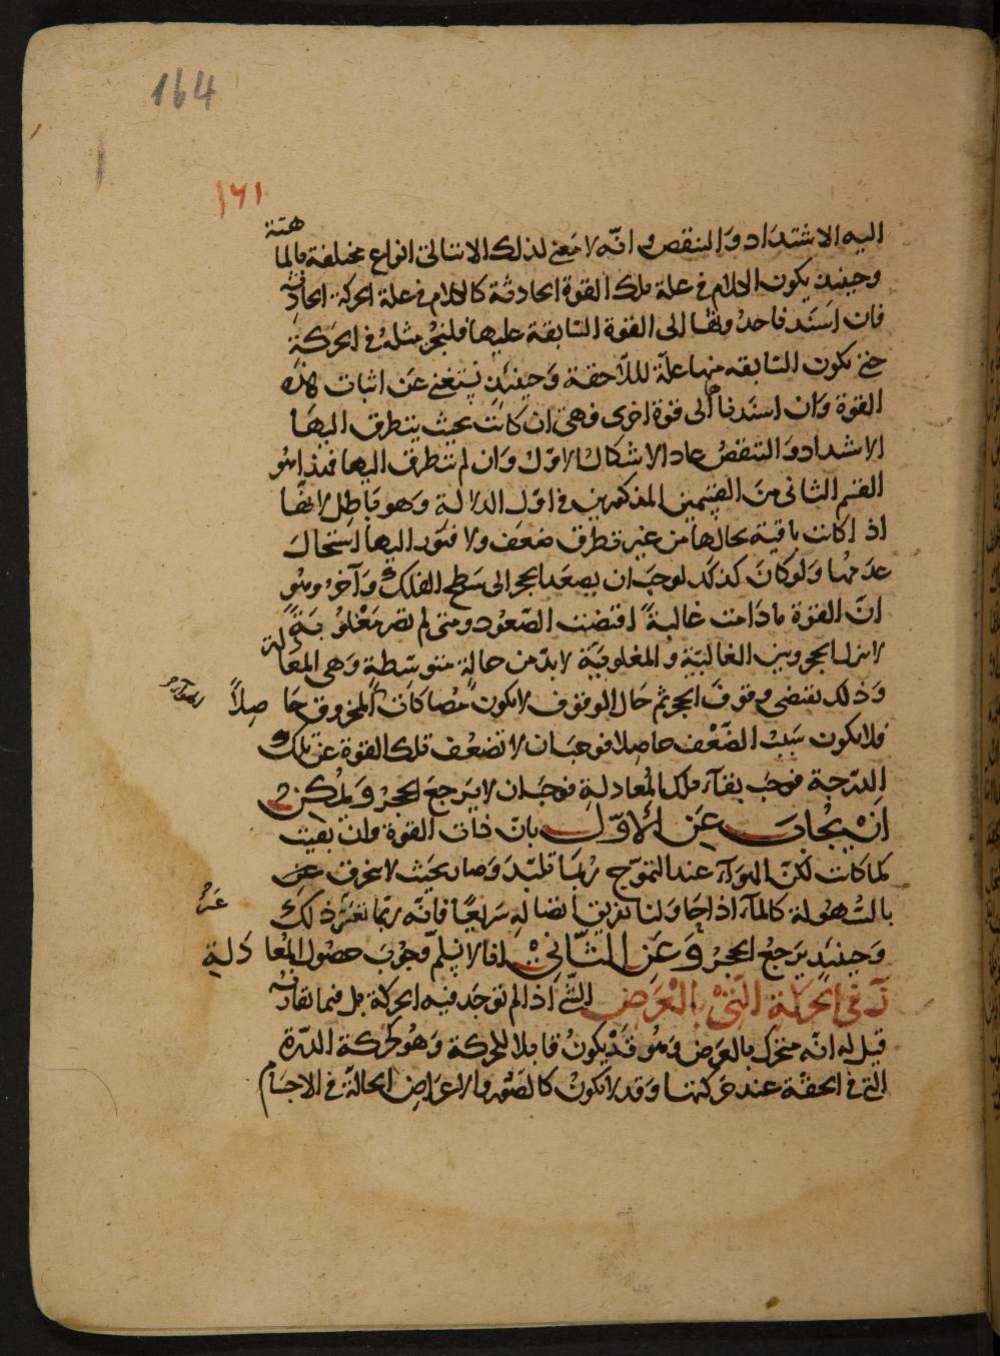 164
١٦١
اليه الاشتداد والتنقص وانه لا معنى لذلك الا تتالى انواع مختلفة بالماهية
وحينئذ يكون الكلام فى علة تلك القوة الحادثة كالكلام فى علة الحركة الحادثة
فان اسند حدوثها الى القوة السابقة عليها فليجز مثله فى الحركة
حتى تكون السابقه منها علة لللاحقة وحينئذ يستغنى عن اثبات هذه
القوة وان اسندناها الى قوة اخرى فهى ان كانت بحيث يتطرق اليها
الاشداد والتنقص عاد الاشكال الاول وان لم تتطرق اليها فهذا هو
القسم الثانى من القسمين المذكورين فى اول الدلالة وهو باطل لانها
اذا كانت باقية بحالها من غير تطرق ضعف ولا فتور اليها استحال
عدمها ولو كان كذلك لوجب ان يصعد الحجر الى سطح الفلك وآخر وهو
ان القوة ما دامت غالبة اقتضت الصعود ومتى لم تصر مغلوبة
لا ينزل الحجر وبين الغالبية والمغلوبية لا بد من حالة متوسطة وهى المعادلة
وذلك يقتضى وقوف الحجر ثم حال الوقوف لا يكون مصاكات المخروق حاصلاً
فلا يكون سبب الضعف حاصلا فوجب ان لا تضعف تلك القوة عن تلك
الدرجة فوجب بقآء تلك المعادلة فوجب ان لا يرجع الحجر ويمكن
ان يجاب عن الاول بان ذات القوة وان بقيت
كما كانت لكن الهوآء عند التموج ربما تلبد وصار بحيث لا ينخرق
بالسهولة كالمآء اذا حاولنا تفريق اتصاله سريعًا فانه ربما تعذر ذلك
وحينئذ يرجع الحجر وعن الثانى انا لا نسلم وجوب حصول المعادلة
فى الحركة التى بالعرض الشئ اذا لم توجد فيه الحركة بل فيما يقارنه
قيل له انه متحرك بالعرض وهو قد يكون قابلا للحركة وهو كحركة الدرة
التى فى الحقة عند حركتها وقد لا يكون كالصور والاعراض الحالة فى الاجسام